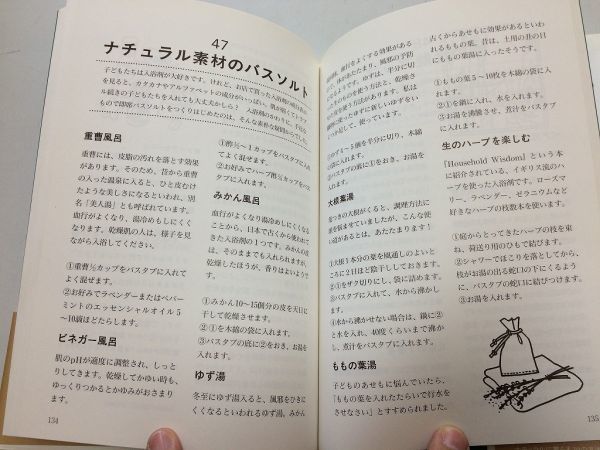 47
ナチュラル素材のバスソルト
子どもたちは入浴剤が大好きです。けれど、お店で買った入浴剤の
を見ると、カタカナやアルファベットの成分がいっぱい。肌が
ル続きの子どもたちを入れても大丈夫かしら？ 入浴剤のかわりに、
もので即席バスソルトをつくりはじめたのは、そんな素朴な疑問からでした。
重曹風呂
重曹には、皮脂の汚れを落とす効果
があります。そのため、昔から重曹
の入った温泉に入ると、ひと皮むけ
たような美しさになるといわれ、別
名「美人湯」とも呼ばれています。
血行がよくなり、湯冷めもしにくく
なります。乾燥肌の人は、様子を見
ながら入浴してください。
①重曹½カップをバスタブに入れて
よく混ぜます。
②お好みでラベンダーまたはペパー
ミントのエッセンシャルオイル5
～10滴ほどたらします。
ビネガー風呂
肌のpHが適度に調整され、しっと
りしてきます。乾燥してかゆい時も、
ゆっくりつかるとかゆみがおさまり
ます。
134
①酢½～1カップをバスタブに入れ
てよく混ぜます。
②お好みでハーブ酢½カップをバス
タブに入れます。
みかん風呂
血行がよくなり湯冷めしにくくなる
ことから、日本で古くから使われて
きた入浴剤の1つです。みかんの皮
は、そのままでも入れられますが、
乾燥したほうが、香りはよいようで
す。
①みかん10～15個分の皮を天日に
干して乾燥させます。
②①を木綿の袋に入れます。
③バスタブの底に②をおき、お湯を
入れます。
ゆず湯
冬至にゆず湯入ると、風邪をひきに
くくなるといわれるゆず湯。みかん
血行をよくする効果がある
体があたたまり、風邪の予防
ります。ゆずは、半分に切
のものを使う方法と、乾燥さ
使う方法があります。私は
に使ったゆずに新しいゆずをい
つか足して、使っています。
①ゆず4～5個を半分に切り、木綿
の袋に入れます。
②バスタブの底に①をおき、お湯を
入れます。
大根葉湯
葉つきの大根がくると、調理方法に
頭を悩ませていましたが、こんな使
い道があるとは、あたたまります！
①大根1本分の葉を風通しのよいと
ころに2日ほど陰干ししておきます。
②①をザク切りにし、袋に詰めます。
③バスタブに入れて、水から沸かし
ます。
④水から沸かせない場合は、鍋に②
と水を入れ、40度くらいまで沸か
し、煮汁をバスタブに入れます。
ももの葉湯
子どものあせもに悩んでいたら、
「ももの葉を入れたたらいで行水
をさせなさい」とすすめられました。
古くからあせもに効果があるといわ
れるももの葉。昔は、土用の丑の日
にももの葉湯に入ったそうです。
①ももの葉5～10枚を木綿の袋に入
れます。
②①を鍋に入れ、水を入れます。
③お湯を沸騰させ、煮汁をバスタブ
に入れます。
生のハーブを楽しむ
『Household Wisdom』という本
に紹介されている、イギリス流のハ
ーブを使った入浴剤です。ローズマ
リー、ラベンダー、ゼラニウムなど
好きなハーブの枝数本を使います。
①庭からとってきたハーブの枝を束
ね、荷送り用のひもで結びます。
②シャワーでほこりを落としてから、
枝がお湯の出る蛇口の下にくるよう
に、バスタブの蛇口に結びつけます。
③お湯を入れます。
135